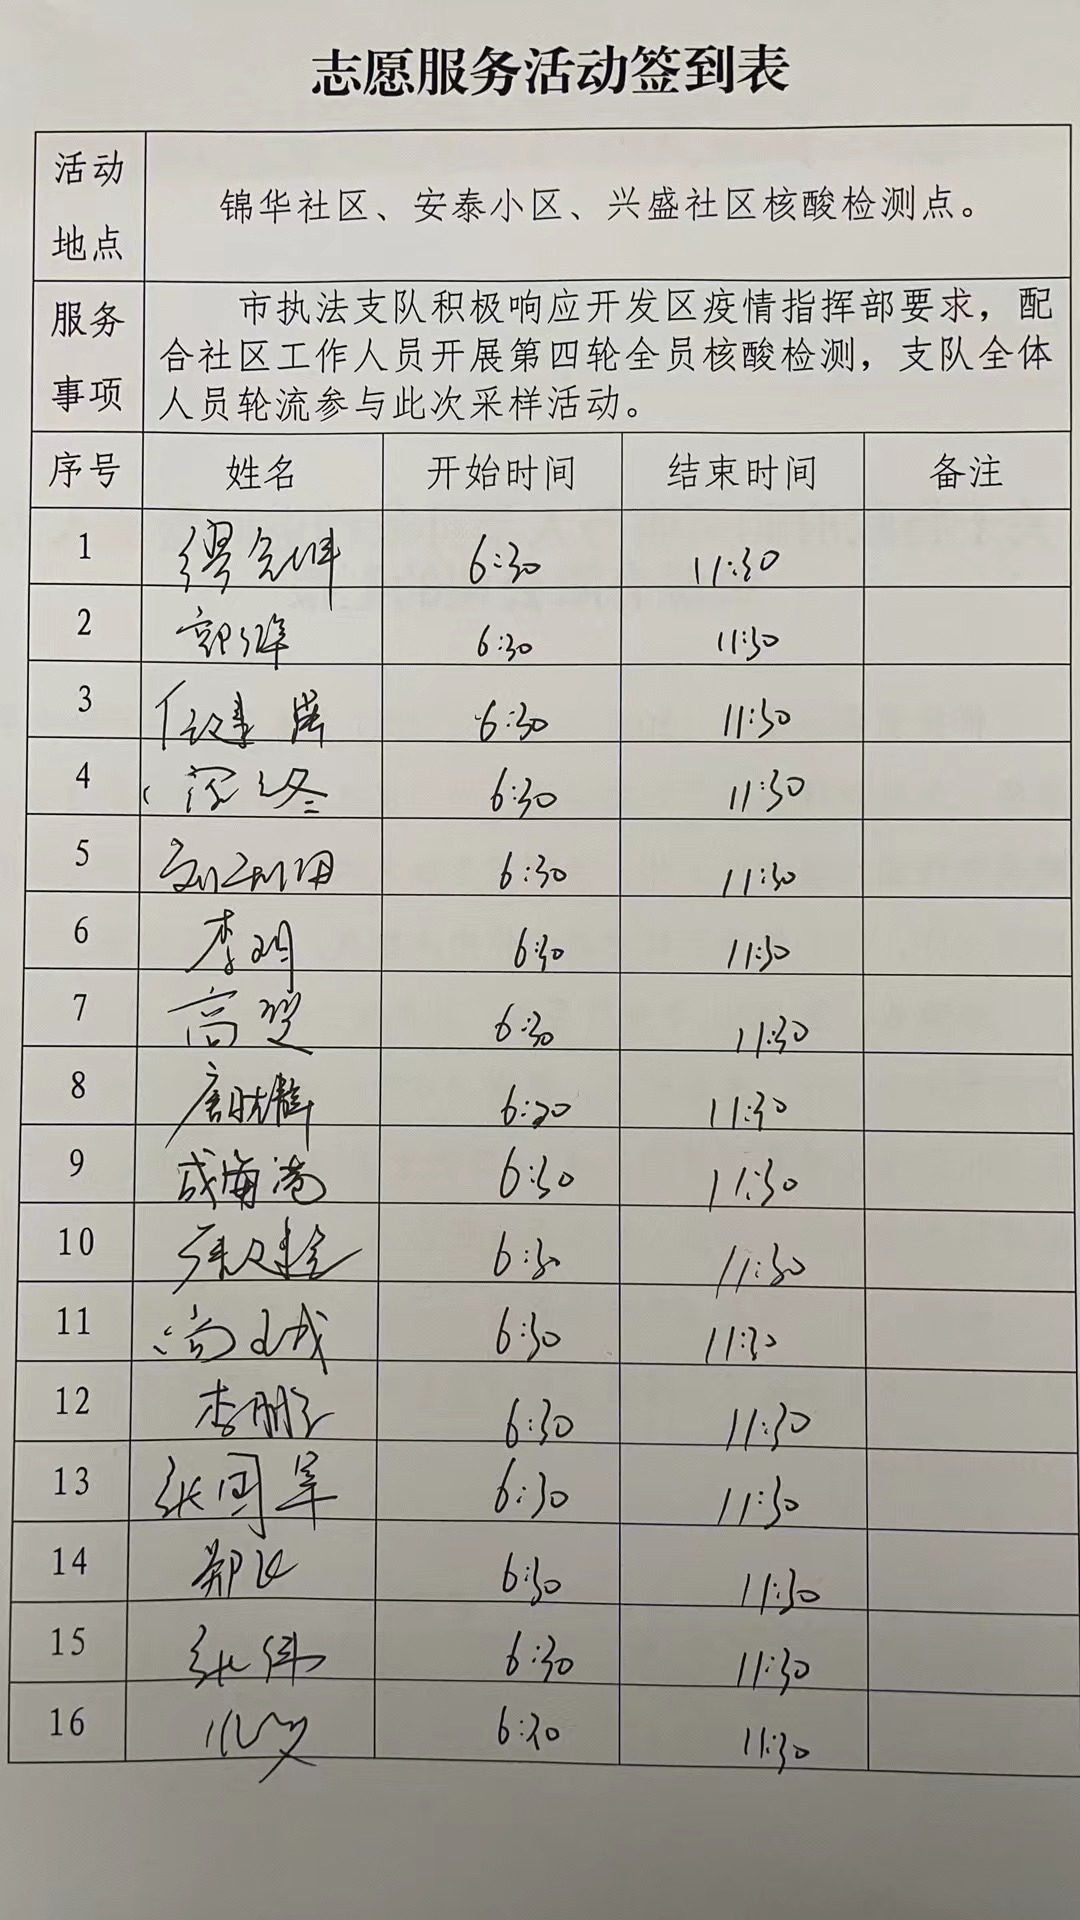 志愿服务活动签到表
活动地点
锦华社区、安泰小区、兴盛社区核酸检测点。
服务事项
市执法支队积极响应开发区疫情指挥部要求，配
合社区工作人员开展第四轮全员核酸检测，支队全体
人员轮流参与此次采样活动。
序号 姓名 开始时间 结束时间 备注
1 6:30 11:30
2 6:30 11:30
3 6:30 11:30
4 6:30 11:30
5 6:30 11:30
6 李明 6:30 11:30
7 6:30 11:30
8 6:30 11:30
9 成海涛 6:30 11:30
10 6:30 11:30
11 6:30 11:30
12 李鹏 6:30 11:30
13 张国军 6:30 11:30
14 6:30 11:30
15 张伟 6:30 11:30
16 6:30 11:30